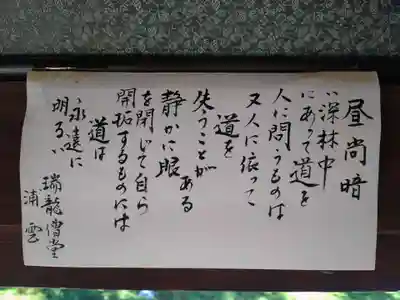 昼尚暗
い深林中
にあって道を
人に問うものは
又人に依って
道を
失うことが
ある
静かに眼
を閉じて自ら
開拓するものには
道は
永遠に
明るい
瑞龍僧堂
浦雲